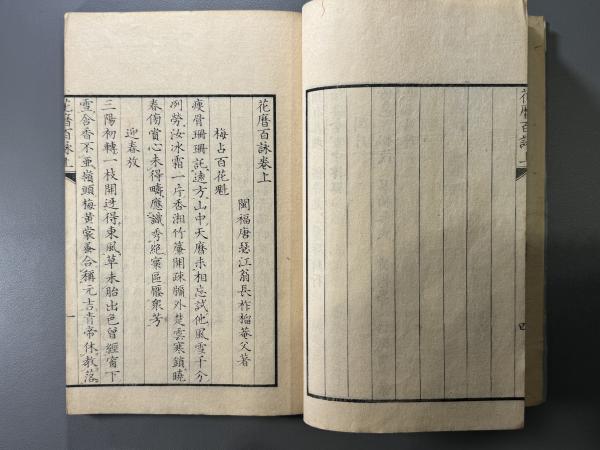 花曆百詠上
四
花曆百詠卷上
閩福唐瑟江翁長祚榴菴父著
梅占百花魁
瘦骨珊珊託遠方山中天曆未相忘試他風雪千分
冽勞汝冰霜一序香湘竹簾開疎牖外楚雲寒鎖曉
春傍賞心未得疇應識秀絕寰區壓衆芳
迎春放
三陽初轉一枝開迓得東風草未胎出色曾經宵下
雪含香不並嶺頭梅黃裳蚤合稱元吉青帝休教落
花曆百詠上
一